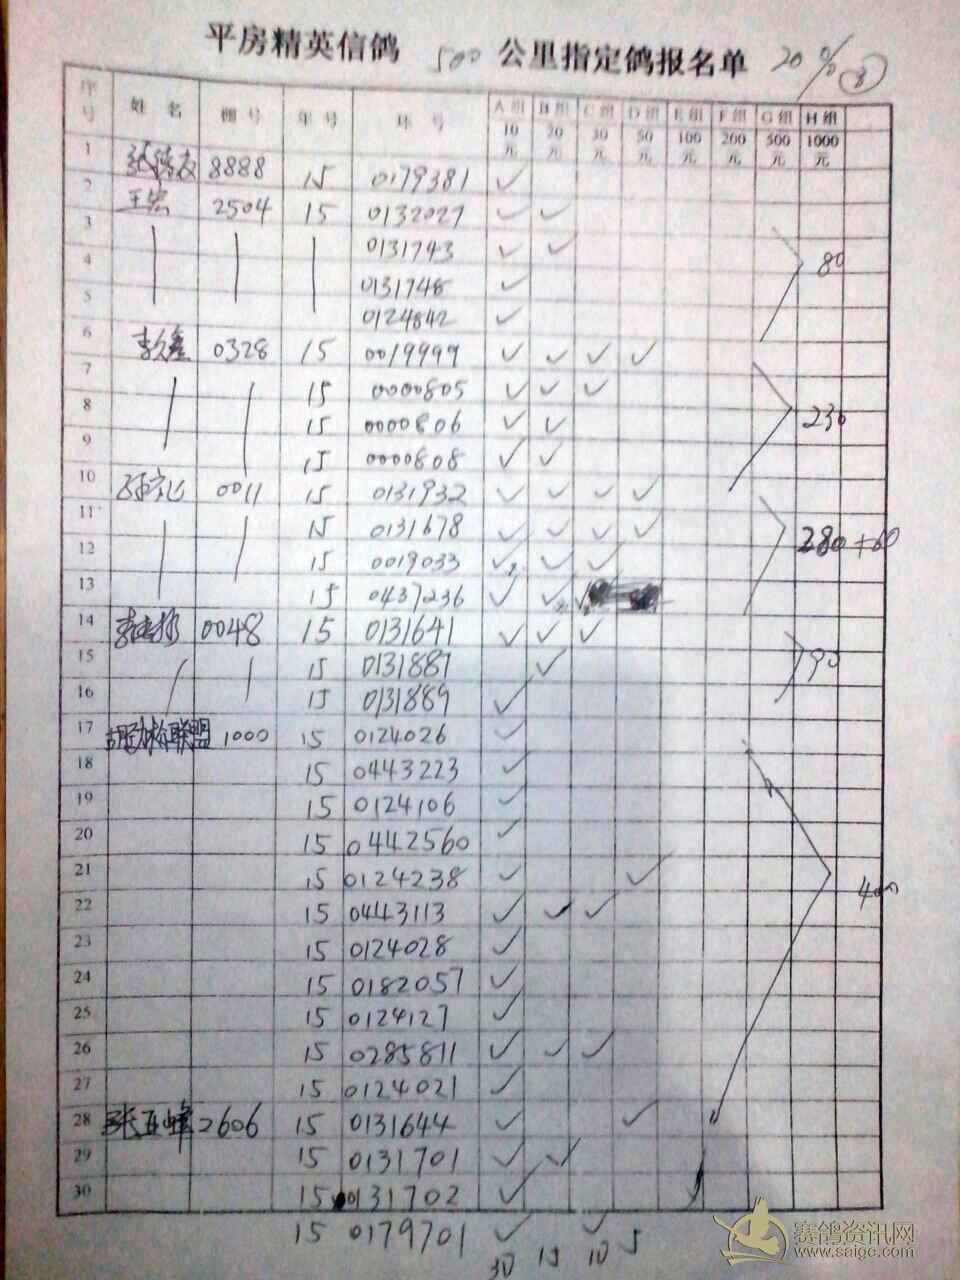 平房精英信鸽 500 公里指定鸽报名单 20% ⑧
序号 姓名 棚号 年号 环号 A组 10元 B组 20元 C组 30元 D组 50元 E组 100元 F组 200元 G组 500元 H组 1000元
1 8888 15 0179381 ✓
2 王宏 2504 15 0132027 ✓ ✓
3 0131743 ✓ ✓ 80
4 0131748 ✓
5 0124842 ✓
6 0328 15 0019999 ✓ ✓ ✓ ✓
7 15 0000805 ✓ ✓ ✓
8 15 0000806 ✓ ✓ 230
9 15 0000808 ✓ ✓
10 0011 15 0131932 ✓ ✓ ✓ ✓
11 15 0131678 ✓ ✓ ✓ ✓ 280+60
12 15 0019033 ✓ ✓ ✓
13 15 0437236 ✓ ✓ ✓
14 0048 15 0131641 ✓ ✓ ✓
15 15 0131887 ✓ 90
16 15 0131889 ✓
17 联盟 1000 15 0124026 ✓
18 15 0443223 ✓
19 15 0124106 ✓
20 15 0442560 ✓
21 15 0124238 ✓ ✓
22 15 0443113 ✓ ✓ ✓ 400
23 15 0124028 ✓
24 15 0182057 ✓
25 15 0124127 ✓
26 15 0285811 ✓ ✓ ✓
27 15 0124021 ✓
28 张亚峰 2606 15 0131644 ✓ ✓
29 15 0131701 ✓ ✓
30 15 0131702 ✓
15 0179701 ✓ ✓
30 15 10 5
赛鸽资讯网
www.saige.com